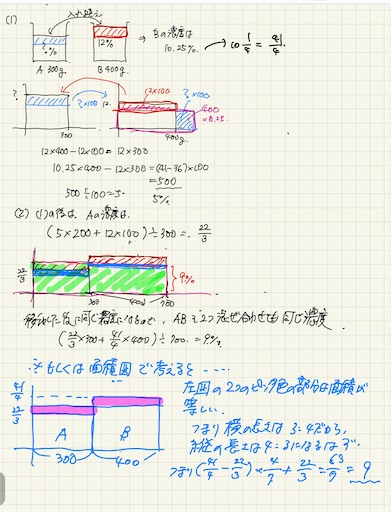 (1)
入れ替え
?%
12%
A 300g
B 400g
⇒ Bの濃度は
10.25%.
→ 10 1/4 = 41/4.
?
?×100
12
12×100
?×100
400
×10.25
300
400g
12×400 − 12×100 = 12×300
10.25×400 − 12×300 = (41−36)×100
= 500
500÷100 = 5.
5%
(2) (1)の後は、Aの濃度は、
(5×200 + 12×100) ÷ 300 = 22/3
22/3
9%
300
400
700
同じ濃度になるので, ABを2つ混ぜ合わせても同じ濃度
(22/3×300 + 41/4×400) ÷ 700 = 9%
もしくは面積図で考えると ....
41/4
22/3
A
B
300
400
左図の2つのピンク色の部分は面積が
等しい.
つまり 横の長さは 3:4だから,
縦の長さは 4:3になるはず.
つまり (41/4 − 22/3) × 4/7 + 22/3 = 63/7 = 9